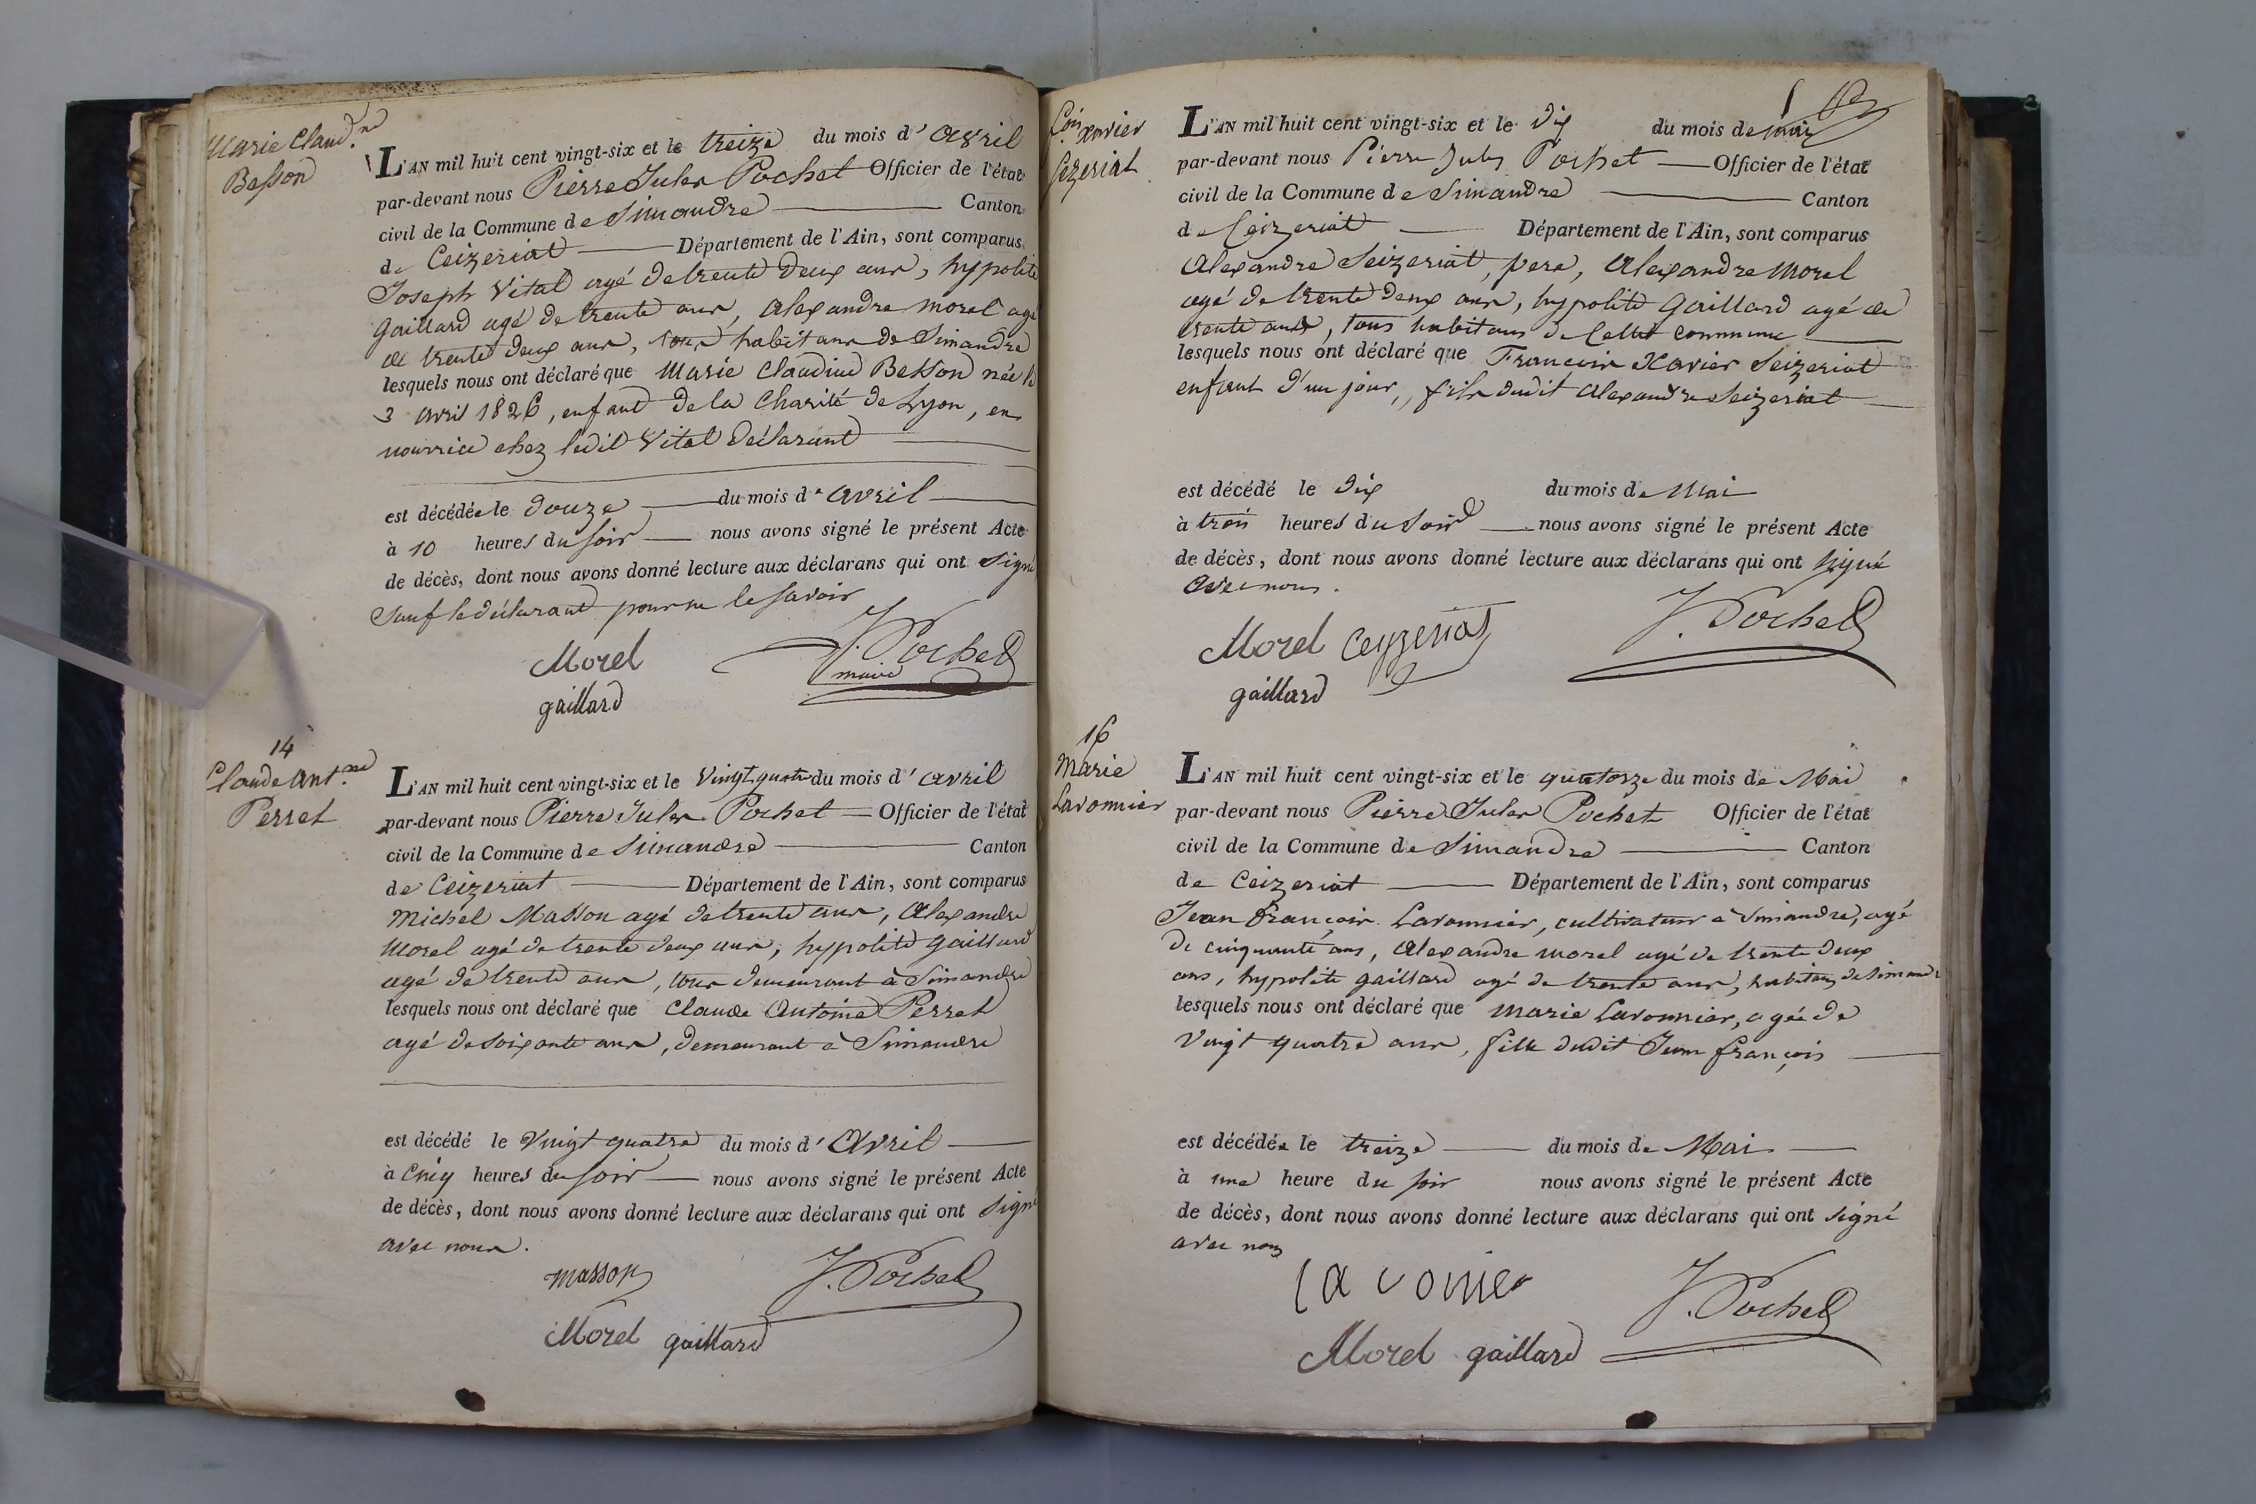 Marie Claud.ne
Besson
L'AN mil huit cent vingt-six et le treize du mois d'avril
par-devant nous Pierre Jules Pochet Officier de l'état
civil de la Commune de Simandre Canton
de Ceizeriat Département de l'Ain, sont comparus
Joseph Vital agé de trente deux ans, hypolite
Gaillard agé de trente ans, alexandre morel agé
de trente deux ans, tous habitans de Simandre
lesquels nous ont déclaré que Marie Claudine Besson née le
3 avril 1826, enfant de la Charité de Lyon, en
nourrice chez ledit Vital déclarant
est décédée le douze du mois d'avril
à 10 heures du soir nous avons signé le présent Acte
de décès, dont nous avons donné lecture aux déclarans qui ont signé
sauf le déclarant pour ne le savoir
Morel J. Pochet
maire
gaillard
14
Claude Ant.ne
Perret
L'AN mil huit cent vingt-six et le vingt quatre du mois d'avril
par-devant nous Pierre Jules Pochet Officier de l'état
civil de la Commune de Simandre Canton
de Ceizeriat Département de l'Ain, sont comparus
Michel Masson agé de trente ans, Alexandre
Morel agé de trente deux ans, hypolite gaillard
agé de trente ans, tous demeurant à Simandre
lesquels nous ont déclaré que Claude Antoine Perret
agé de soixante ans, demeurant à Simandre
est décédé le vingt quatre du mois d'Avril
à cinq heures du soir nous avons signé le présent Acte
de décès, dont nous avons donné lecture aux déclarans qui ont signé
avec nous.
masson J. Pochet
Morel gaillard
Xavier
Cezeriat
L'AN mil huit cent vingt-six et le dix du mois de mai
par-devant nous Pierre Jules Pochet Officier de l'état
civil de la Commune de Simandre Canton
de Ceizeriat Département de l'Ain, sont comparus
Alexandre Seizeriat, pere, Alexandre Morel
agé de trente deux ans, hypolite Gaillard agé de
trente ans, tous habitans de Cette commune
lesquels nous ont déclaré que Francois Xavier Seizeriat
enfant d'un jour, fils dudit Alexandre Seizeriat
est décédé le dix du mois de Mai
à trois heures du soir nous avons signé le présent Acte
de décès, dont nous avons donné lecture aux déclarans qui ont signé
avec nous.
Morel Ceyzeriat J. Pochet
gaillard
16
Marie
Lavonnier
L'AN mil huit cent vingt-six et le quatorze du mois de Mai
par-devant nous Pierre Jules Pochet Officier de l'état
civil de la Commune de Simandre Canton
de Ceizeriat Département de l'Ain, sont comparus
Jean françois Lavonnier, cultivateur à Simandre, agé
de cinquante ans, Alexandre morel agé de trente deux
ans, hypolite gaillard agé de trente ans, habitans de Simandre
lesquels nous ont déclaré que Marie Lavonnier, agée de
vingt quatre ans, fille dudit Jean françois
est décédée le treize du mois de Mai
à une heure du soir nous avons signé le présent Acte
de décès, dont nous avons donné lecture aux déclarans qui ont signé
avec nous
J. Pochet
Morel gaillard